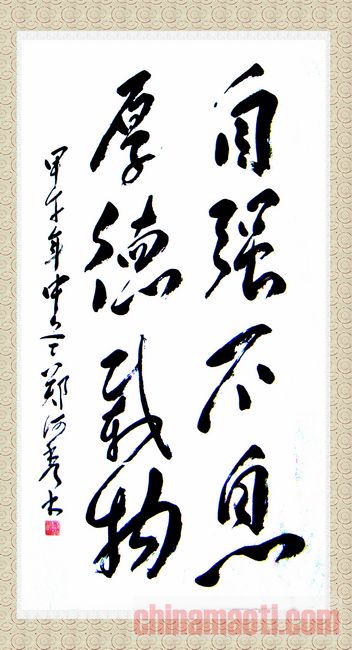 自强不息
厚德载物
甲午年中郑河
chinamaoti.com